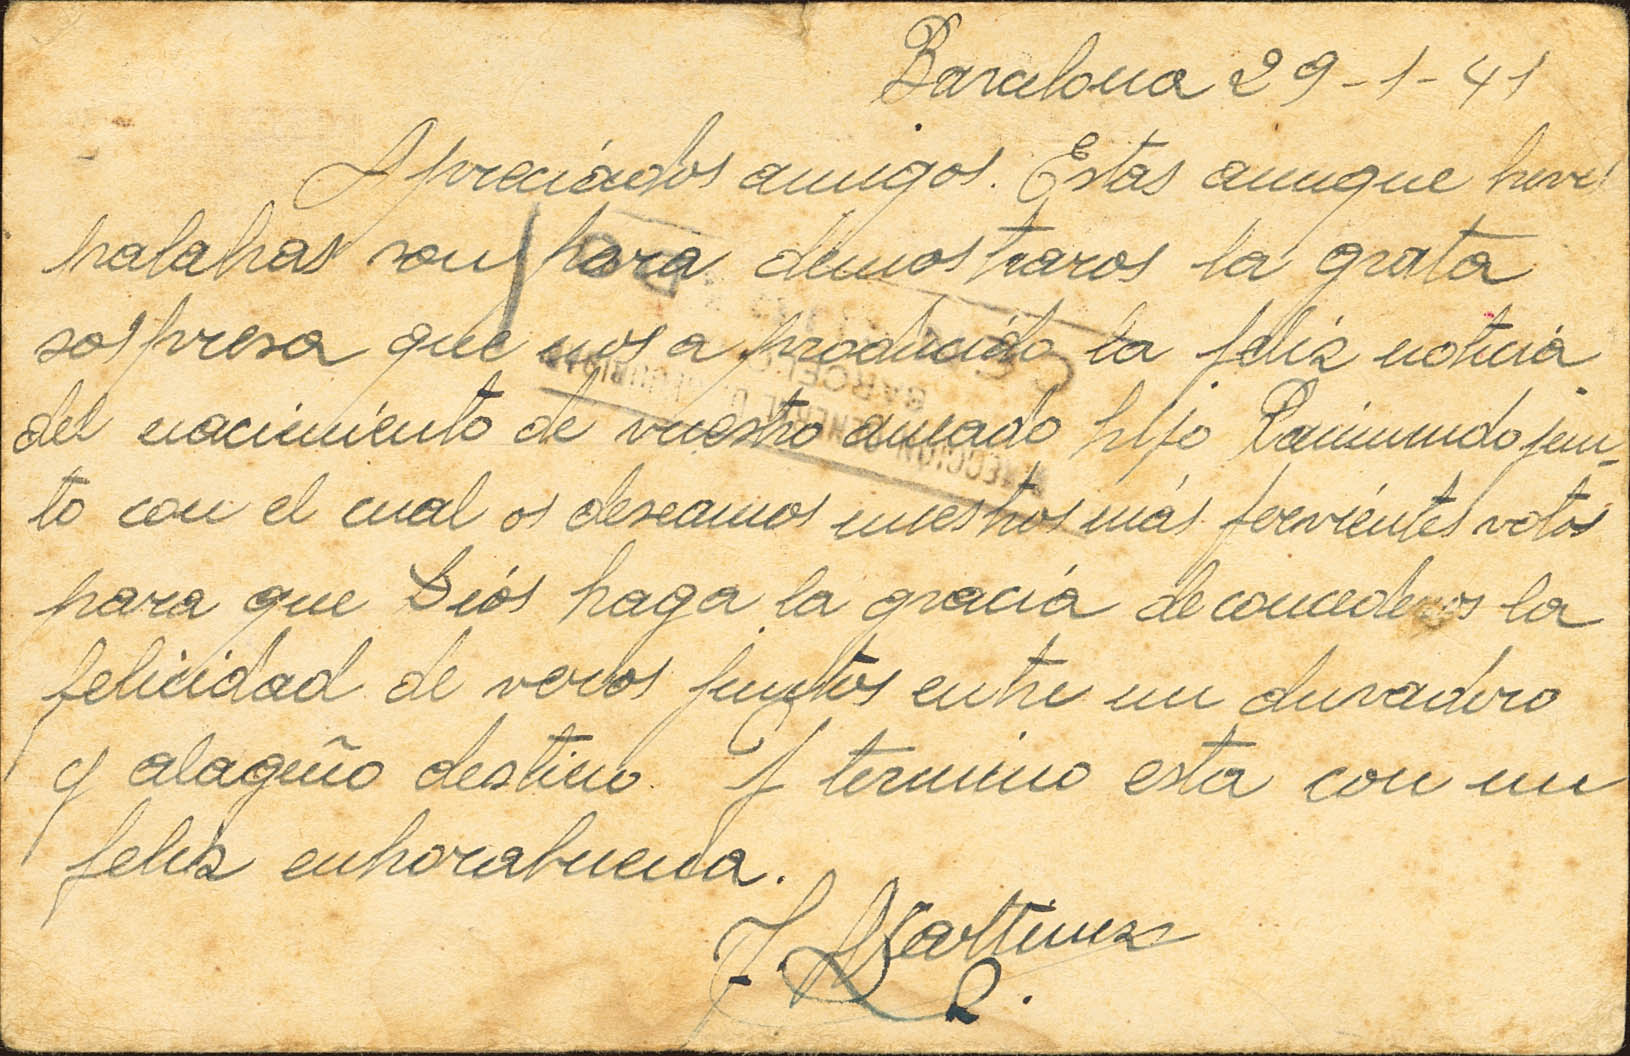 Barcelona 29-1-41
Apreciádos amigos. Estas aunque breves
palabras son para demostraros la grata
sospresa que nos a producido la feliz noticia
del nacimiento de vuestro amado hijo Raimundo jun-
to con el cual os deseamos nuestros más fervientes votos
para que Diós haga la graciá de concederos la
felicidad de veros juntos entre un duradero
y alagüeño destino. Y termino esta con un
feliz enhorabuena.
J. Martinez